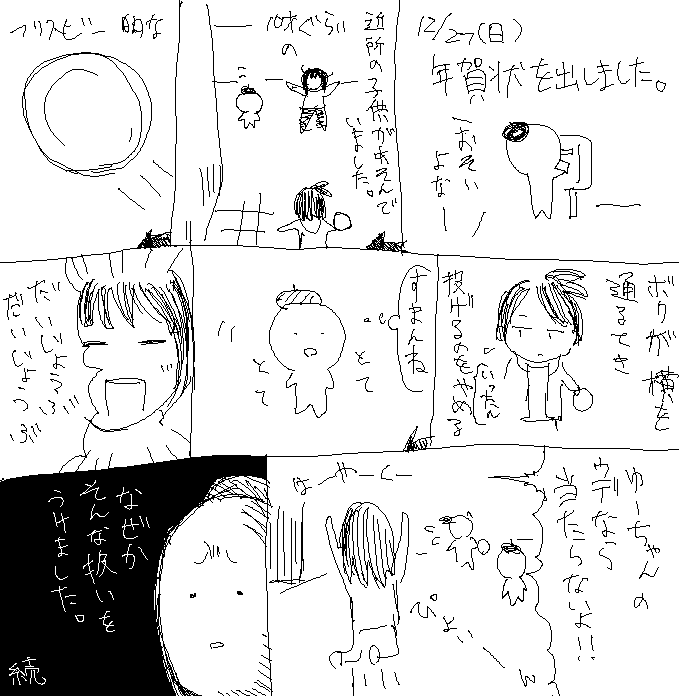 12/27(日)
年賀状を出しました。
「おそい
よなー」
近所の子供があそんで
いました。
10才ぐらい
の
フリスビー的な
ボクが横を
通るとき
いったん
投げるのをやめる
すまんね
とて
とて
だいじょうぶ
だいじょうぶ
ゆーちゃんの
ウデなら
当たらないよ!!
はーやーくー
ぴょいー
なぜか
そんな扱いを
うけました。
続